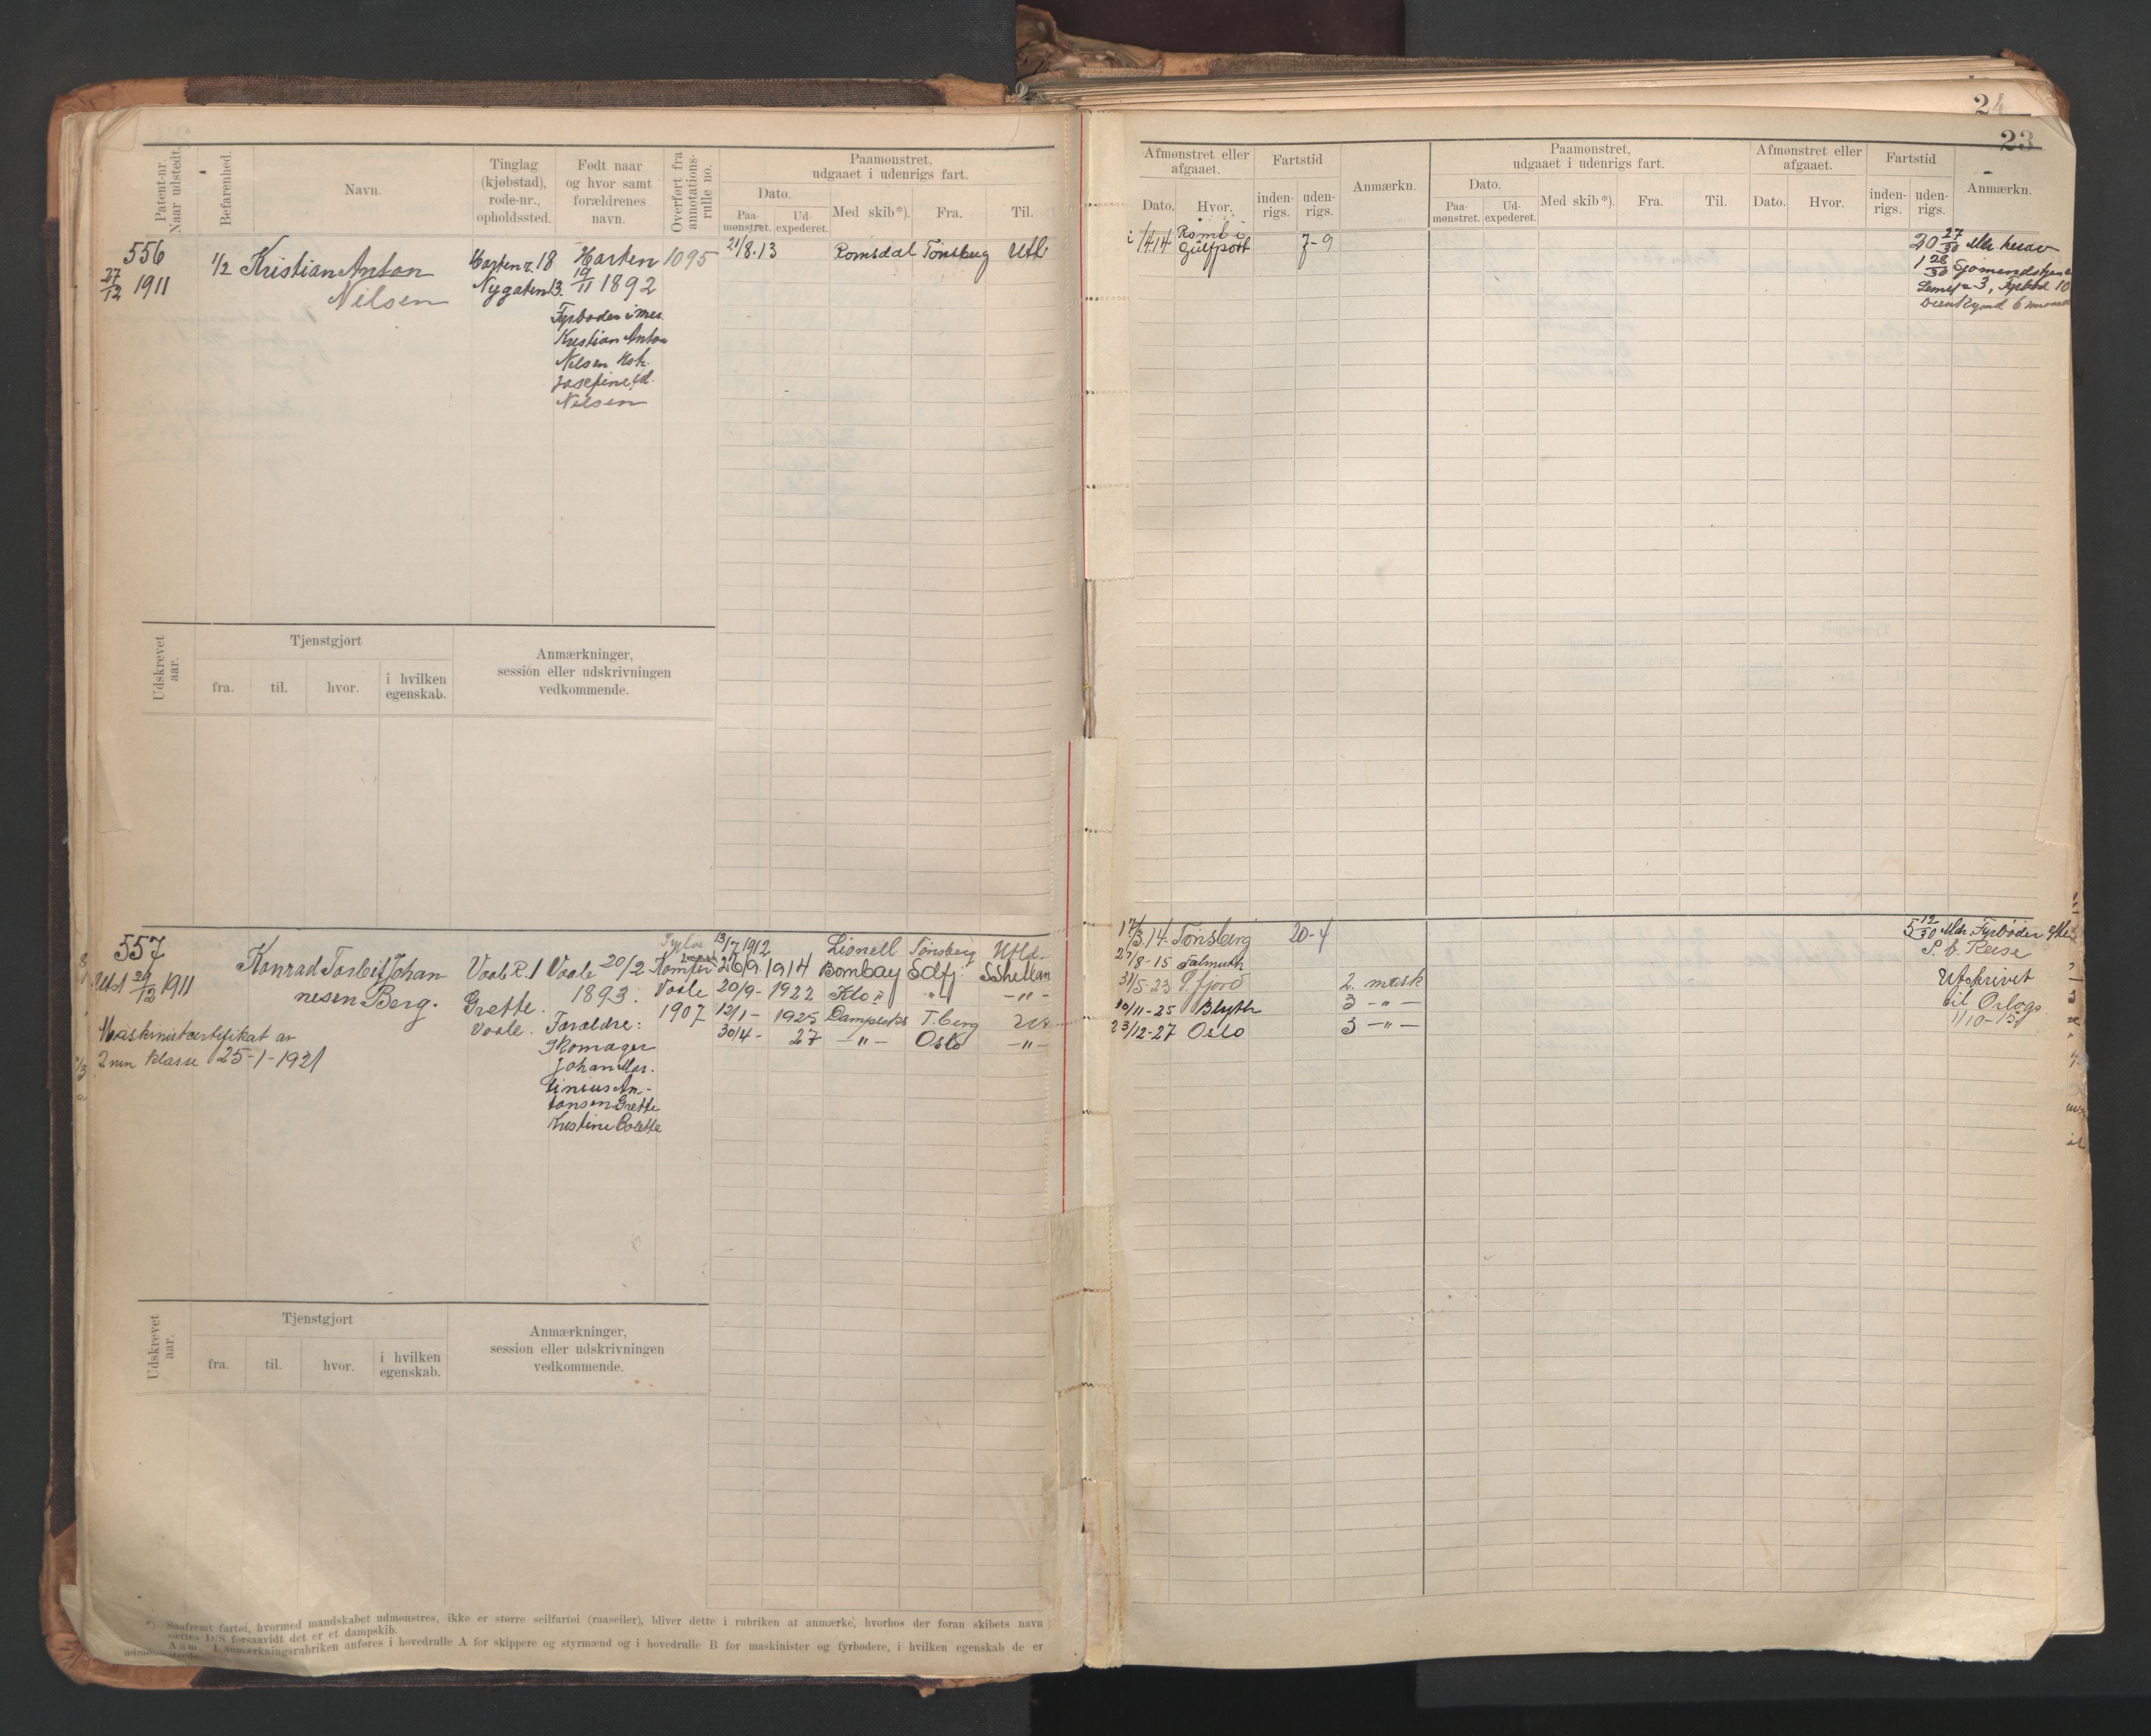 24
23
Patent-nr. Naar udstedt.
Befarenhed.
Navn.
Tinglag (kjøbstad), rode-nr., opholdssted.
Født naar og hvor samt forældrenes navn.
Overført fra annotations-rulle no.
Paamønstret, udgaaet i udenrigs fart.
Dato.
Paa-mønstret.
Ud-expederet.
Med skib*).
Fra.
Til.
Afmønstret eller afgaaet.
Dato.
Hvor.
Fartstid
inden-rigs.
uden-rigs.
Anmærkn.
Paamønstret, udgaaet i udenrigs fart.
Dato.
Paa-mønstret.
Ud-expederet.
Med skib*).
Fra.
Til.
Afmønstret eller afgaaet.
Dato.
Hvor.
Fartstid
inden-rigs.
uden-rigs.
Anmærkn.
556
27/12 1911
1/2
Kristian Anton
Nilsen
Horten r. 18
Nygaten 13.
Horten
19/11 1892
Fyrbøder i mar.
Kristian Anton
Nilsen
Josefine
Nilsen
1095
21/8.13
Romsdal
Tønsberg
Utl.
1/4 14
Gulfport
7-9
20 27/30 Mdr. besav
1 28/30
Fyrbød. 10
Udskrevet aar.
Tjenstgjort
fra.
til.
hvor.
i hvilken egenskab.
Anmærkninger, session eller udskrivningen vedkommende.
557
29/12 1911
Maskinistcertifikat av
2nen klasse 25-1-1921
Konrad Torleif Johan
nesen Berg.
Vaale R. 1
Grette.
Vaale.
Vaale 20/2
1893.
Forældre:
Skomager
Johan Mar-
tinius An-
tonsen Grette
Kristine Bolette
Vaale
1907
13/7 1912 Lionell Tønsberg Utld.
26/9 1914 Bombay Sdfj. S Shetland
20/9 - 1922 Klo " -"-
12/1 - 1925 Dampsks T.berg
30/4 - 27 -"- Oslo -"-
17/3.14. Tønsberg 20-4
27/8-15 Falmuth
31/5-23 S.fjord 2. mask
10/11-25 Blyth 3 -"-
23/12-27 Oslo 3 -"-
5 12/30 Mdr. Fyrbøder
Utskrivet
til Orlogs
1/10-15
Udskrevet aar.
Tjenstgjort
fra.
til.
hvor.
i hvilken egenskab.
Anmærkninger, session eller udskrivningen vedkommende.
*) Saafremt fartøi, hvormed mandskabet udmønstres, ikke er større seilfartøi (raaseiler), bliver dette i rubriken at anmærke, hvorhos der foran skibets navn
sættes D/S forsaavidt det er et dampskib.
Anm. I anmærkningsrubriken anføres i hovedrulle A for skippere og styrmænd og i hovedrulle B for maskinister og fyrbødere, i hvilken egenskab de er
udmønstrede.